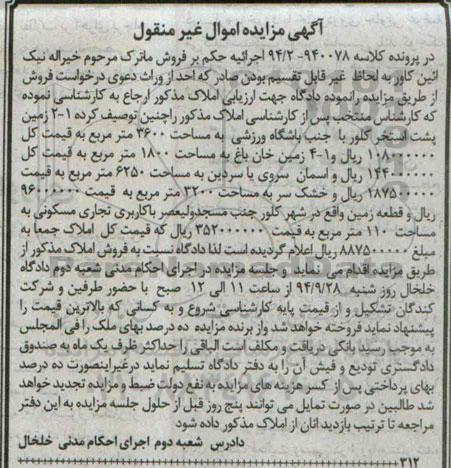 آگهی مزایده اموال غیر منقول
در پرونده کلاسه ۹۴۰۰۷۸- ۹۴/۲ اجرائیه حکم بر فروش ماترک مرحوم خیراله نیک
ائین کاور به لحاظ غیر قابل تقسیم بودن صادر که احد از وراث دعوی درخواست فروش
از طریق مزایده رانموده دادگاه جهت ارزیابی املاک مذکور ارجاع به کارشناسی نموده
که کارشناس منتخب پس از کارشناسی املاک مذکور راچنین توصیف کرده ۱-۲ زمین
پشت استخر گلور با جنب باشگاه ورزشی به مساحت ۳۶۰۰ متر مربع به قیمت کل
۱۰۸۰۰۰۰۰۰۰ ریال و۱-۴ زمین خان باغ به مساحت ۱۸۰۰ متر مربع به قیمت کل
۱۴۴۰۰۰۰۰۰۰ ریال و اسمان سروی یا سردین به مساحت ۶۲۵۰ متر مربع به قیمت
۱۸۷۵۰۰۰۰۰۰ ریال و خشک سر به مساحت ۳۲۰۰ متر مربع به قیمت ۹۶۰۰۰۰۰۰۰
ریال و قطعه زمین واقع در شهر کلور جنب مسجدولیعصر باکاربری تجاری مسکونی به
مساحت ۱۱۰ متر مربع به قیمت ۳۵۲۰۰۰۰۰۰۰ ریال که قیمت کل املاک جمعا به
مبلغ ۸۸۷۵۰۰۰۰۰۰ ریال اعلام گردیده است لذا دادگاه نسبت به فروش املاک مذکور از
طریق مزایده اقدام می نماید و جلسه مزایده در اجرای احکام مدنی شعبه دوم دادگاه
خلخال روز شنبه ۹۴/۹/۲۸ از ساعت ۱۱ الی ۱۲ صبح با حضور طرفین و شرکت
کندگان تشکیل و از قیمت پایه کارشناسی شروع و به کسانی که بالاترین قیمت را
پیشنهاد نماید فروخته خواهد شد واز برنده مزایده ده درصد بهای ملک را فی المجلس
به موجب رسید بانکی دریافت و مکلف است الباقی را حداکثر ظرف یک ماه به صندوق
دادگستری تودیع و فیش آن را به دفتر دادگاه تسلیم نماید درغیراینصورت ده درصد
بهای پرداختی پس از کسر هزینه های مزایده به نفع دولت ضبط و مزایده تجدید خواهد
شد طالبین در صورت تمایل می توانند پنج روز قبل از حلول جلسه مزایده به این دفتر
مراجعه تا ترتیب بازدید انان از املاک مذکور داده شود
دادرس شعبه دوم اجرای احکام مدنی خلخال
۳۱۲